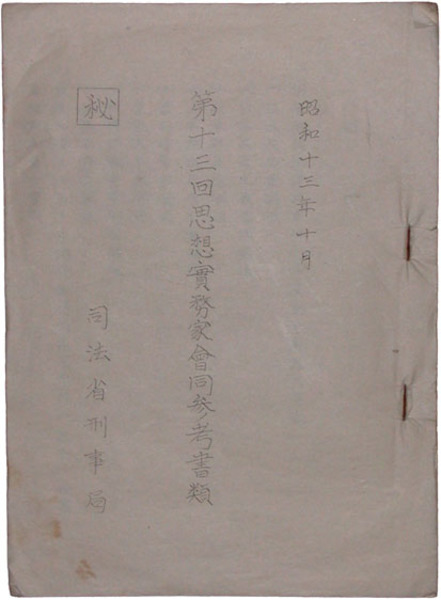 昭和十三年十月
第十三回思想實務家會同参考書類
秘
司法省刑事局